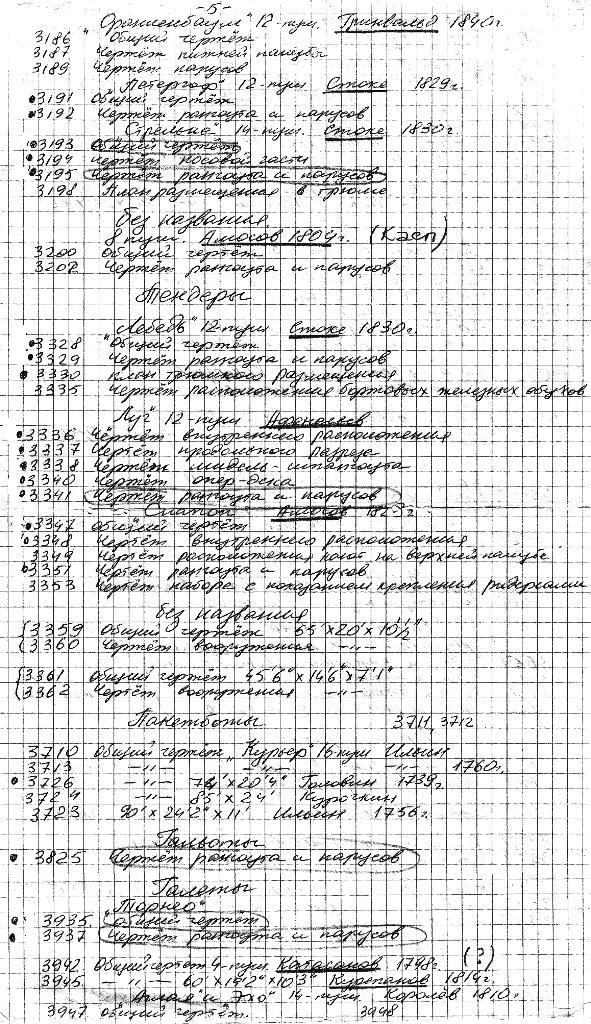 -5-
Ораниенбаум" 12-пуш. Гринвальд 1840г.
3186 Общий чертёж
3187 Чертёж нижней палубы
3189 Чертёж парусов
"Петергоф" 12-пуш. Стоке 1829г.
3191 Общий чертёж
3192 Чертёж рангоута и парусов
"Стрельна" 14-пуш. Стоке 1830г.
3193 Общий чертёж
3194 Чертёж носовой части
3195 Чертёж рангоута и парусов
3198 План размещения в трюме
Без названия
8 пуш. Амосов 1804г. (Касп)
3200 Общий чертёж
3202 Чертёж рангоута и парусов
Тендеры
"Лебедь" 12-пуш Стоке 1830г.
3328 Общий чертёж
3329 Чертёж рангоута и парусов
3330 план трюмного размещения
3335 Чертёж расположения бортовых железных обухов
Луч" 12-пуш Афанасьев
3336 Чертёж внутреннего расположения
3337 Чертёж продольного разреза
3338 Чертёж мидель-шпангоута
3340 Чертёж опер-дека
3341 Чертёж рангоута и парусов
Амосов 1823г.
3347 общий чертёж
3348 Чертёж внутреннего расположения
3349 Чертёж расположения кают на верхней палубе
3351 Чертёж рангоута и парусов
3353 Чертёж набора с показанием крепления ридерсами
без названия
3359 Общий чертёж 55'х20'х10'½"
3360 Чертёж вооружения -"-
3361 общий чертёж 45'6"х14'6"х7'1"
3362 Чертёж вооружения -"-
Пакетботы 3711, 3712
3710 общий чертёж „Курьер" 16пуш Ильин
3713 -"- -"- -"- 1760г.
3726 -"- х20'4" Головин 1739г.
372 -"- 85'х24' Курочкин
3723 90'х24'2"х11' Ильин 1756г.
Гальоты
3825 Чертёж рангоута и парусов
Галеты
"Торнео"
3935 Общий чертёж
3937 Чертёж рангоута и парусов
3942 Общий чертёж 4-пуш. Катасанов 1798г. (?)
3945 -"- 60'х19'2"х10'3" Курепанов 1814г.
"Аглая" и "Эхо" 14-пуш. Королёв 1810г.
3947 общий чертёж. 3948